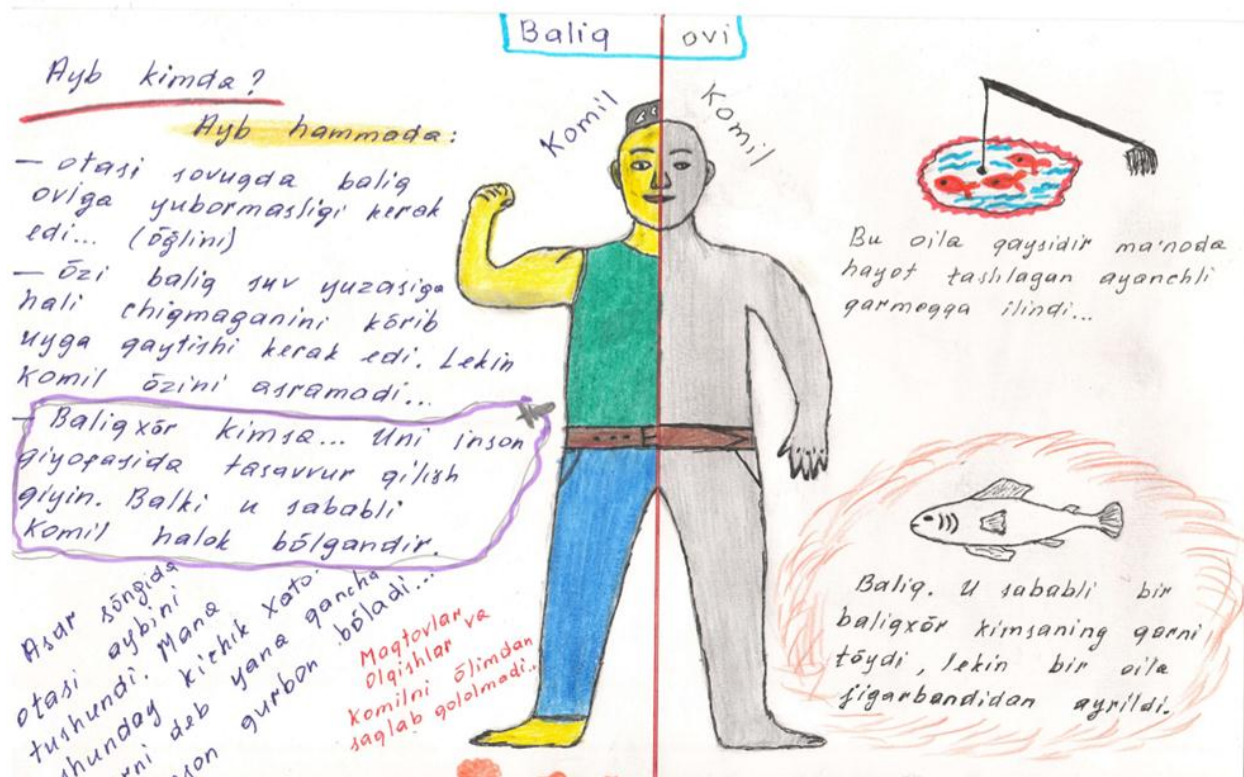 Baliq ovi
Ayb kimda?
Ayb hammada:
– otasi sovuqda baliq
oviga yubormasligi kerak
edi... (õğlini)
– õzi baliq suv yuzasiga
hali chiqmaganini kõrib
uyga qaytishi kerak edi. Lekin
Komil õzini asramadi...
– Baliqxõr kimsa... Uni inson
qiyofasida tasavvur qilish
qiyin. Balki u sababli
Komil halok bõlgandir.
Asar sõngida
otasi aybini
tushundi. Mana
shunday kichik xato.
deb yana qancha
qurbon bõladi...
Maqtovlar va
Olqishlar
Komilni õlimdan
saqlab qololmadi..
Komil
Komil
Bu oila qaysidir ma'noda
hayot tashlagan ayanchli
qarmoqqa ilindi...
Baliq. U sababli bir
baliqxõr kimsaning qorni
tõydi, lekin bir oila
jigarbandidan ayrildi.